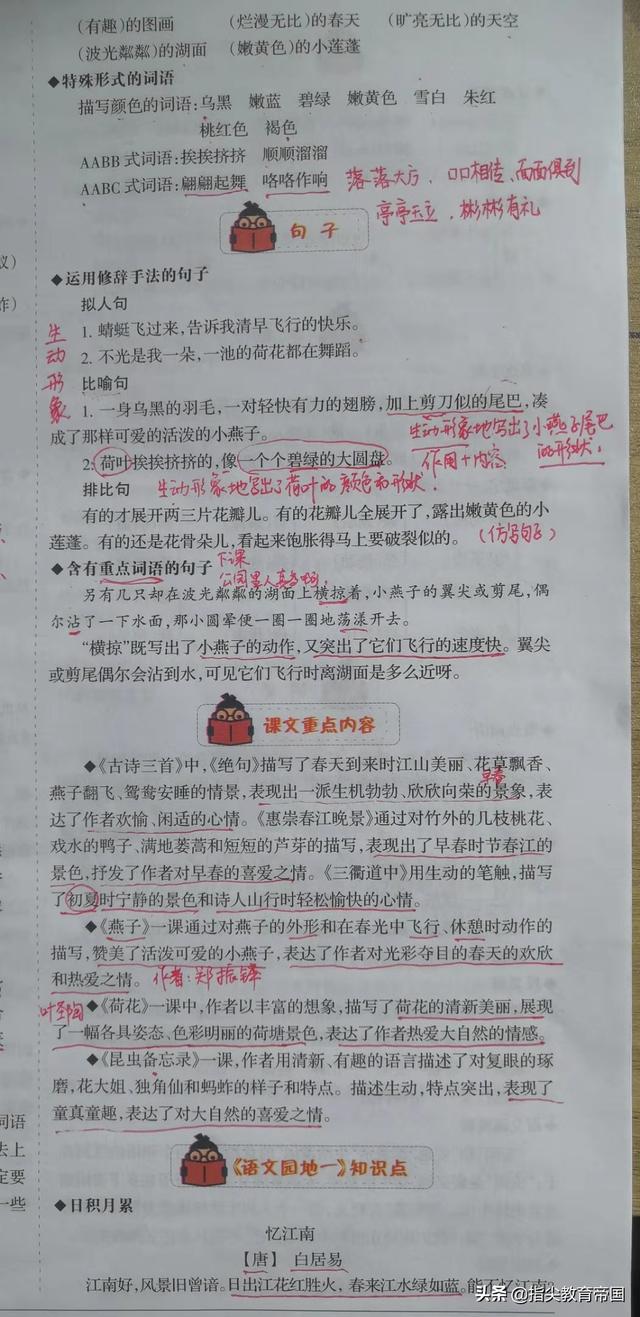 (有趣)的图画 (烂漫无比)的春天 (旷亮无比)的天空
(波光粼粼)的湖面 (嫩黄色)的小莲蓬
◆特殊形式的词语
描写颜色的词语:乌黑 嫩蓝 碧绿 嫩黄色 雪白 朱红
桃红色 褐色
AABB式词语:挨挨挤挤 顺顺溜溜
AABC式词语:翩翩起舞 咯咯作响 落落大方、口口相传、面面俱到
亭亭玉立、彬彬有礼
句子
◆运用修辞手法的句子
议)
拟人句
作)
生动形象
1. 蜻蜓飞过来,告诉我清早飞行的快乐。
2. 不光是我一朵,一池的荷花都在舞蹈。
比喻句
1. 一身乌黑的羽毛,一对轻快有力的翅膀,加上剪刀似的尾巴,凑
成了那样可爱的活泼的小燕子。 生动形象地写出了小燕子尾巴
的形状!
2. 荷叶挨挨挤挤的,像一个个碧绿的大圆盘。 作用+内容
排比句 生动形象地写出了荷叶的颜色和形状!
有的才展开两三片花瓣儿。有的花瓣儿全展开了,露出嫩黄色的小
莲蓬。有的还是花骨朵儿,看起来饱胀得马上要破裂似的。(仿写句子)
◆含有重点词语的句子 下课
公园里人真多啊
另有几只却在波光粼粼的湖面上横掠着,小燕子的翼尖或剪尾,偶
尔沾了一下水面,那小圆晕便一圈一圈地荡漾开去。
“横掠”既写出了小燕子的动作,又突出了它们飞行的速度快。翼尖
或剪尾偶尔会沾到水,可见它们飞行时离湖面是多么近呀。
课文重点内容
◆《古诗三首》中,《绝句》描写了春天到来时江山美丽、花草飘香、
燕子翻飞、鸳鸯安睡的情景,表现出一派生机勃勃、欣欣向荣的景象,表
早春
达了作者欢愉、闲适的心情。《惠崇春江晚景》通过对竹外的几枝桃花、
戏水的鸭子、满地蒌蒿和短短的芦芽的描写,表现出了早春时节春江的
景色,抒发了作者对早春的喜爱之情。《三衢道中》用生动的笔触,描写
了初夏时宁静的景色和诗人山行时轻松愉快的心情。
◆《燕子》一课通过对燕子的外形和在春光中飞行、休憩时动作的
描写,赞美了活泼可爱的小燕子,表达了作者对光彩夺目的春天的欢欣
和热爱之情。 作者:郑振铎
叶圣陶 ◆《荷花》一课中,作者以丰富的想象,描写了荷花的清新美丽,展现
了一幅各具姿态、色彩明丽的荷塘景色,表达了作者热爱大自然的情感。
◆《昆虫备忘录》一课,作者用清新、有趣的语言描述了对复眼的琢
磨,花大姐、独角仙和蚂蚱的样子和特点。描述生动,特点突出,表现了
童真童趣,表达了对大自然的喜爱之情。
词语
法上
定要
一些
《语文园地一》知识点
◆日积月累
忆江南
【唐】 白居易
江南好,风景旧曾谙。日出江花红胜火,春来江水绿如蓝。能不忆江南?
头条 @指尖教育帝国